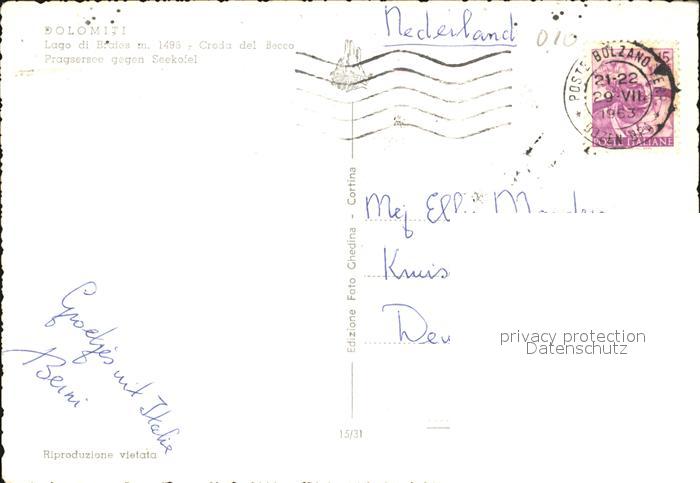 DOLOMITI
Lago di Braies m. 1496 - Croda del Becco
Pragsersee gegen Seekofel
Nederland
010
POSTE BOLZANO FER
21-22
29-VII
1963
BOZEN
POSTE ITALIANE
Edizione Foto Ghedina - Cortina
Mej Elli
Kruis
privacy protection
Datenschutz
Groetjes uit Italie
Berni
15/31
Riproduzione vietata